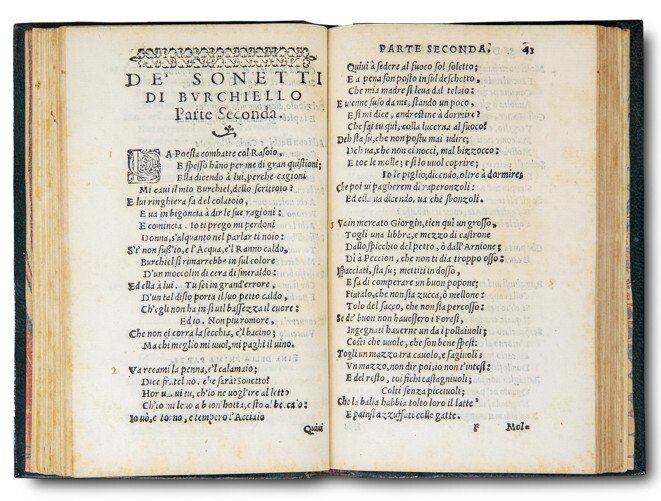 DE' SONETTI
DI BVRCHIELLO
Parte Seconda.
1 LA Poesia combatte col Rasoio,
E spesso hāno per me di gran quistioni;
Ella dicendo à lui, perche cagioni
Mi caui il mio Burchiel, dello scrittoio?
E lui ringhiera fa del colatoio,
E ua in bigoncia à dir le sue ragioni:
E comincia. Io ti prego mi perdoni
Donna, s'alquanto nel parlar ti noio:
S'i' non fuss'io, e l'Acqua, e'l Ranno caldo,
Burchiel si rimarrebbe in sul colore
D'un moccolin di cera di smeraldo:
Ed ella à lui. Tu sei in grand'errore,
D'un tal disio porta il suo petto caldo,
Ch'egli non ha in sì uil bassezza il cuore:
Ed io. Non piu romore,
Che non ci corra la secchia, e'l bacino;
Ma chi meglio mi uuol, mi paghi il uino.
2 Va recami la penna, e'l calamaio;
Dice fratelmo. che sarà? Sonetto?
Hor tu, ch'io ne uogl'ire al letto
Ch'io
Io uò, e torno, e tempero l'Acciaio
Quiui
PARTE SECONDA. 43
Quiui à sedere al fuoco sol soletto;
E a pena son posto in sul deschetto,
Che mia madre si leua dal telaio:
E uienne suso da me, stando un poco,
E sì mi dice, andrestine à dormire?
Che fai tu quì, colla lucerna al fuoco?
Deh sta su, che non postu mai udire;
Deh ua, che non ci nocci, mal bizzocco:
E toe le molle; e sì lo uuol coprire;
Io le piglio, dicendo, oltre à dormire,
Che poi ui pagherem di raperonzoli:
Ed ella ua dicendo, ua che sbonzoli.
3 Va in mercato Giorgin, tien quì un grosso,
Togli una libbra, e mezzo di castrone
Dallo spicchio del petto, ò dall'Arnione;
Dì à Peccion, che non ti dia troppo osso:
Ispacciati, sta su; mettiti in dosso,
E fa di comperare un buon popone;
Fiutalo, che non sia zucca, ò mellone:
Tolo del sacco, che non sia percosso:
Se de' buon non hauessero i Foresi,
Ingegnati hauerne un da i pollaiuoli;
Costi che uuole, che son bene spesi:
Togli un mazzo tra cauolo, e fagiuoli:
Vn mazzo, non dir poi, io non t'intesi:
E del resto, toi fichi castagniuoli;
Colti senza picciuoli;
Che la balia habbia tolto loro il latte:
E painsi azzuffati colle gatte.
F Mol=